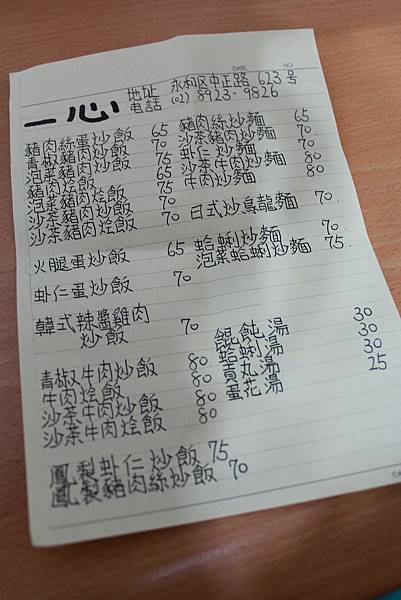 DATE NO
一心
地址 永和区中正路 623号
电話 (02) 8923-9826
豬肉絲蛋炒飯 65
青椒豬肉炒飯 70
泡菜豬肉炒飯 75
豬肉烩飯 65
泡菜豬肉烩飯 75
沙茶豬肉炒飯 70
沙茶豬肉烩飯 70
豬肉絲炒麵 65
沙茶豬肉炒麵 70
虾仁炒麵 70
沙茶牛肉炒麵 80
牛肉炒麵 80
日式炒烏龍麵 70
火腿蛋炒飯 65
虾仁蛋炒飯 70
蛤蜊炒麵 70
泡菜蛤蜊炒麵 75
韓式辣醬雞肉
炒飯 70
青椒牛肉炒飯 80
牛肉烩飯 80
沙茶牛肉炒飯 80
沙茶牛肉烩飯 80
餛飩湯 30
蛤蜊湯 30
貢丸湯 30
蛋花湯 25
鳳製虾仁炒飯 75
鳳製豬肉絲炒飯 70